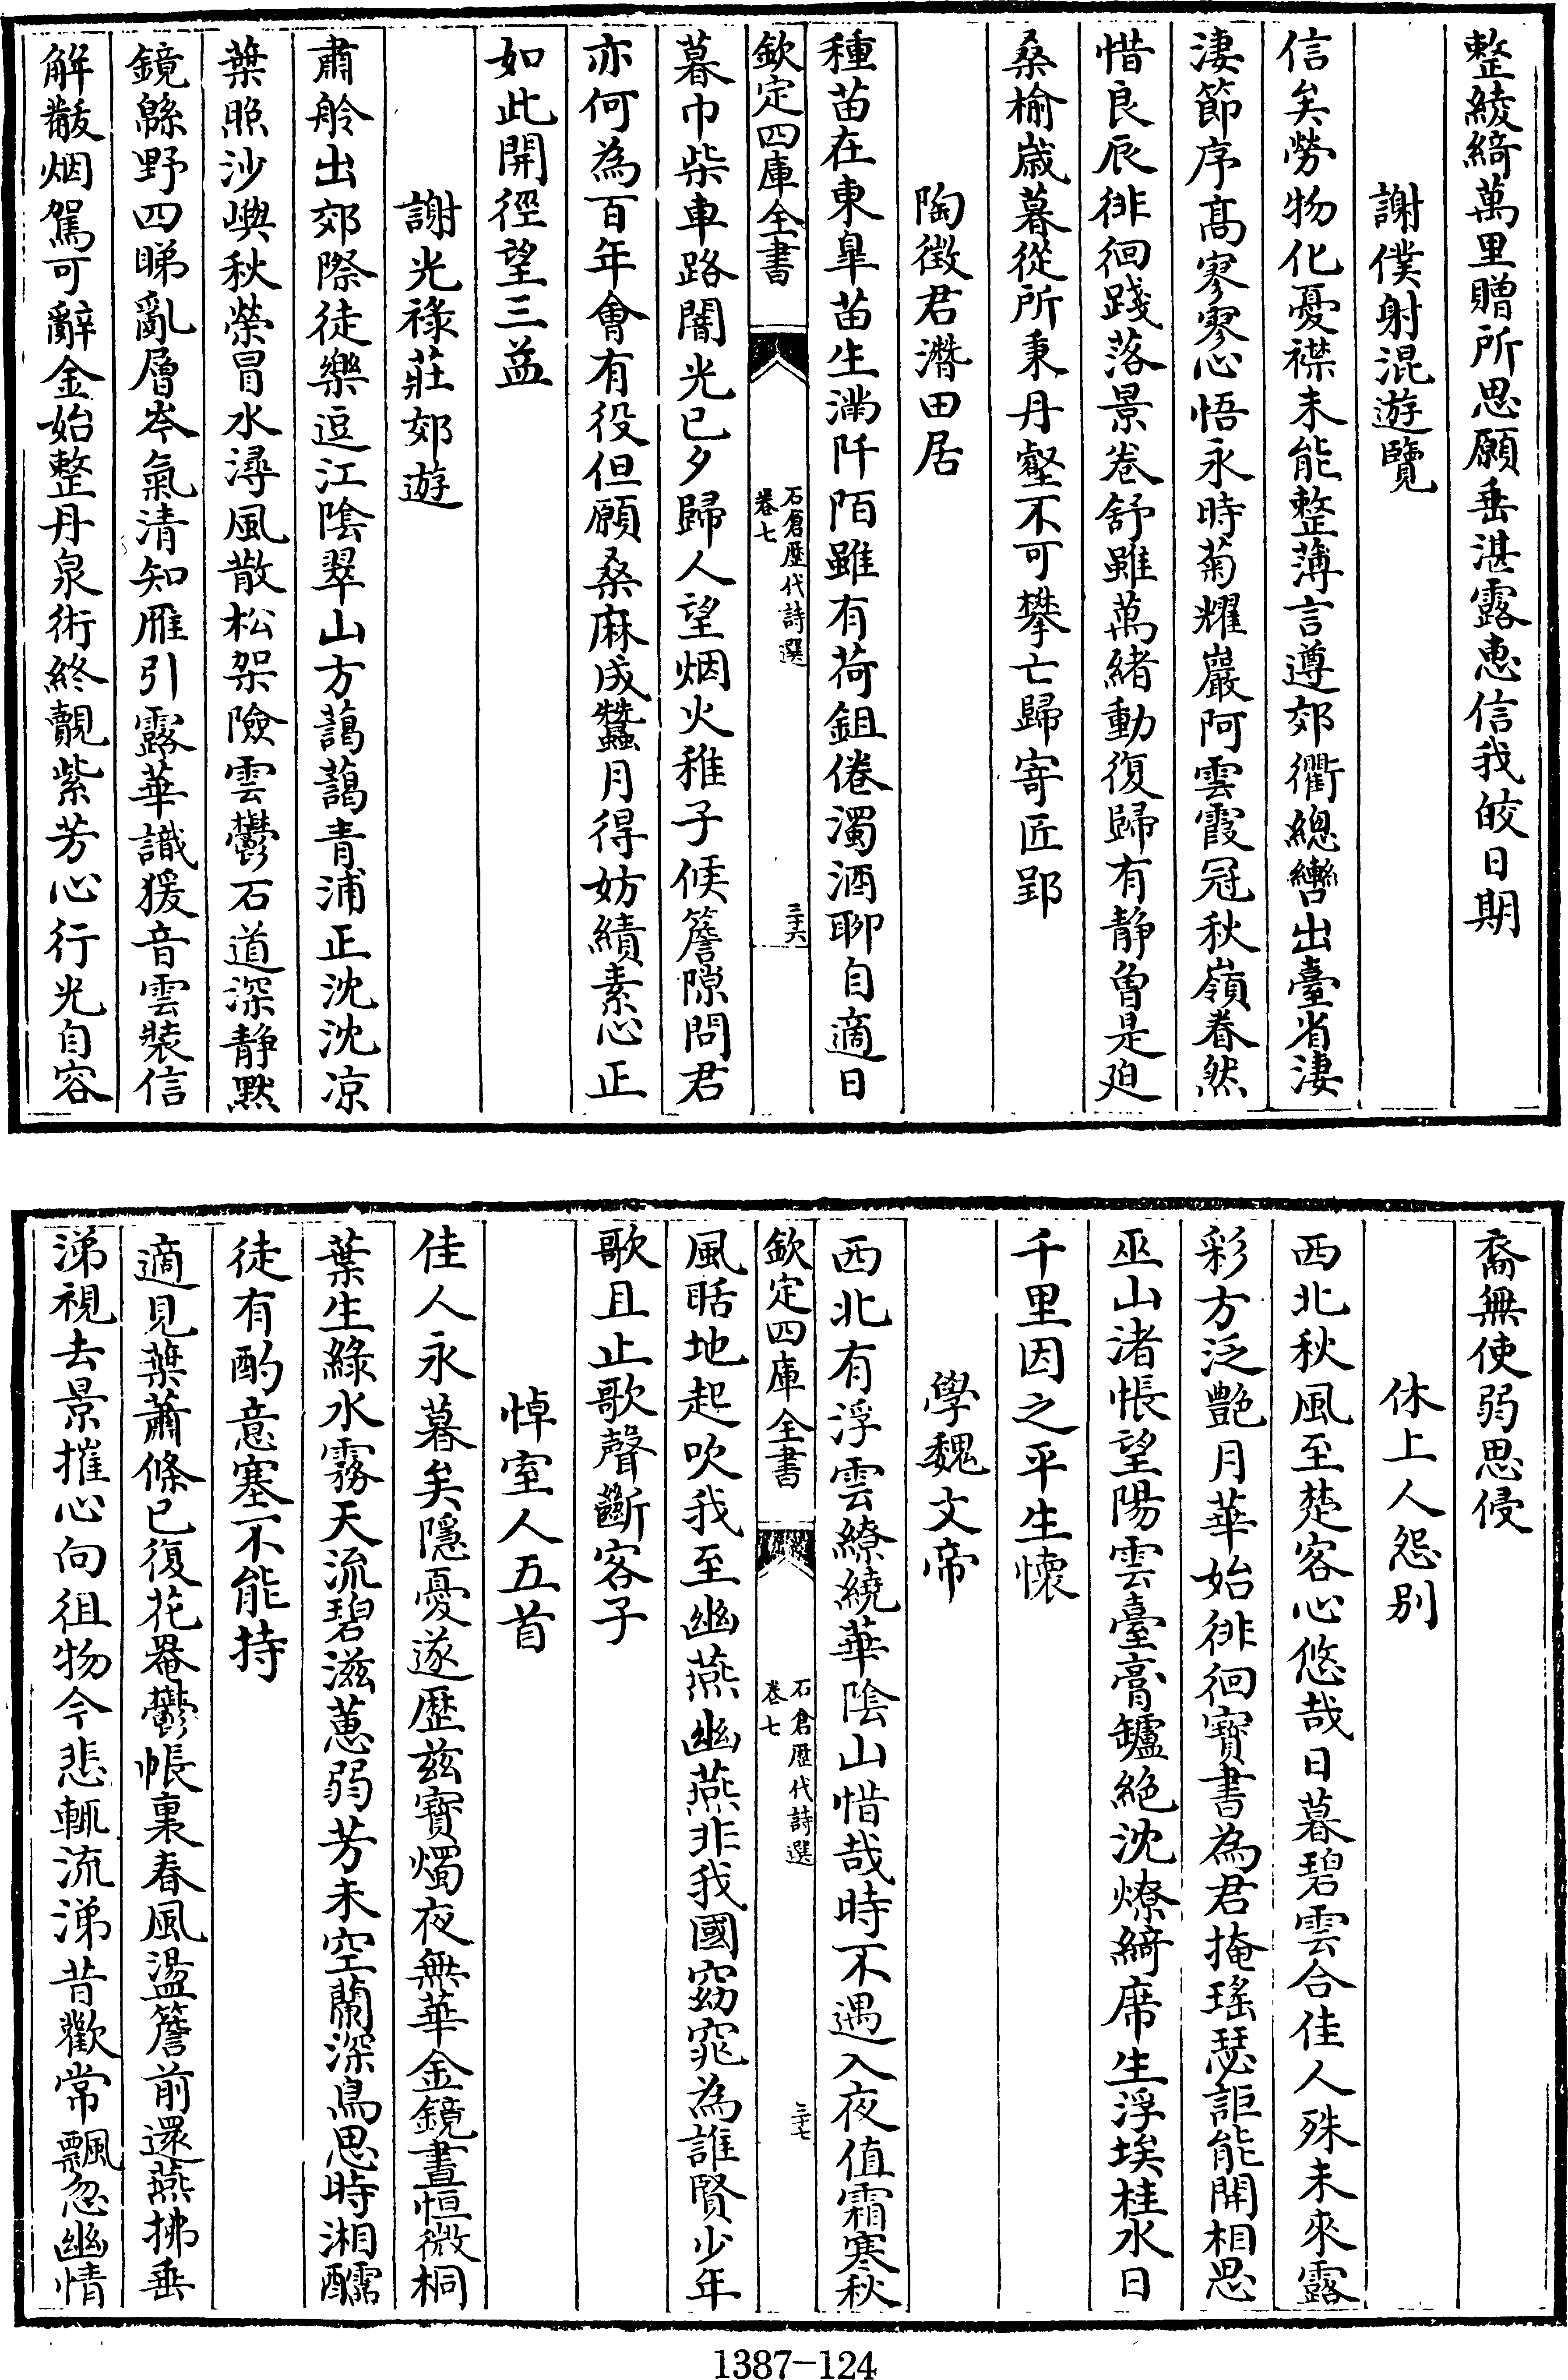 整綾綺萬里贈所思願垂湛露惠信我皎日期
謝僕射混遊覽
信矣勞物化憂襟未能整薄言遵郊衢總轡出臺省淒
淒節序髙寥寥心悟永時菊耀巖阿雲霞冠秋嶺眷然
惜良辰徘徊踐落景卷舒雖萬緒動復歸有静曾是廹
桑榆嵗暮從所秉丹壑不可攀亡歸寄匠郢
陶徴君潛田居
種苗在東臯苗生滿阡陌雖有荷鉏倦濁酒聊自適日
欽定四庫全書
石倉歴代詩選
卷七
三十六
暮巾柴車路闇光已夕歸人望烟火稚子候簷隙問君
亦何為百年會有役但願桑麻成蠶月得妨績素心正
如此開徑望三益
謝光祿莊郊遊
肅舲出郊際徒樂逗江陰翠山方藹藹青浦正沈沈凉
葉照沙嶼秋榮冒水潯風散松架險雲鬱石道深静黙
鏡緜野四睇亂層岑氣清知雁引露華識猨音雲裝信
解黻烟駕可辭金始整丹泉術終覿紫芳心行光自容
裔無使弱思侵
休上人怨别
西北秋風至楚客心悠哉日暮碧雲合佳人殊未來露
彩方泛艶月華始徘徊寳書為君掩瑤瑟詎能開相思
巫山渚悵望陽雲臺膏鑪絶沈燎綺席生浮埃桂水日
千里因之平生懐
學魏文帝
西北有浮雲繚繞華陰山惜哉時不遇入夜值霜寒秋
欽定四庫全書
石倉歴代詩選
卷七
三十七
風聒地起吹我至幽燕幽燕非我國窈窕為誰賢少年
歌且止歌聲斷客子
悼室人五首
佳人永暮矣隱憂遂歴兹寳燭夜無華金鏡晝恒微桐
葉生綠水霧天流碧滋蕙弱芳未空蘭深鳥思時湘醽
徒有酌意塞不能持
適見葉蕭條已復花晻鬱帳裏春風盪簷前還燕拂垂
涕視去景摧心向徂物今悲輒流涕昔歡常飄忽幽情
1387-124